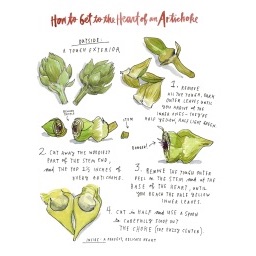 How to Get to the Heart of an Artichoke
OUTSIDE:
A TOUGH EXTERIOR
1. REMOVE
ALL THE TOUGH, DARK
OUTER LEAVES UNTIL
YOU ARRIVE AT THE
INNER ONES - THEY'RE
HALF YELLOW, HALF LIGHT GREEN.
STEM
2. CUT AWAY THE WOODIEST
PART OF THE STEM END,
AND THE TOP 1½ INCHES OF
EVERY ARTICHOKE.
3. REMOVE THE TOUGH OUTER
PEEL ON THE STEM AND AT THE
BASE OF THE HEART, UNTIL
YOU REACH THE PALE YELLOW
INNER LEAVES.
4. CUT IN HALF AND USE A SPOON
TO CAREFULLY SCOOP OUT
THE CHOKE (THE FUZZY CENTER).
INSIDE: A PERFECT, DELICATE HEART